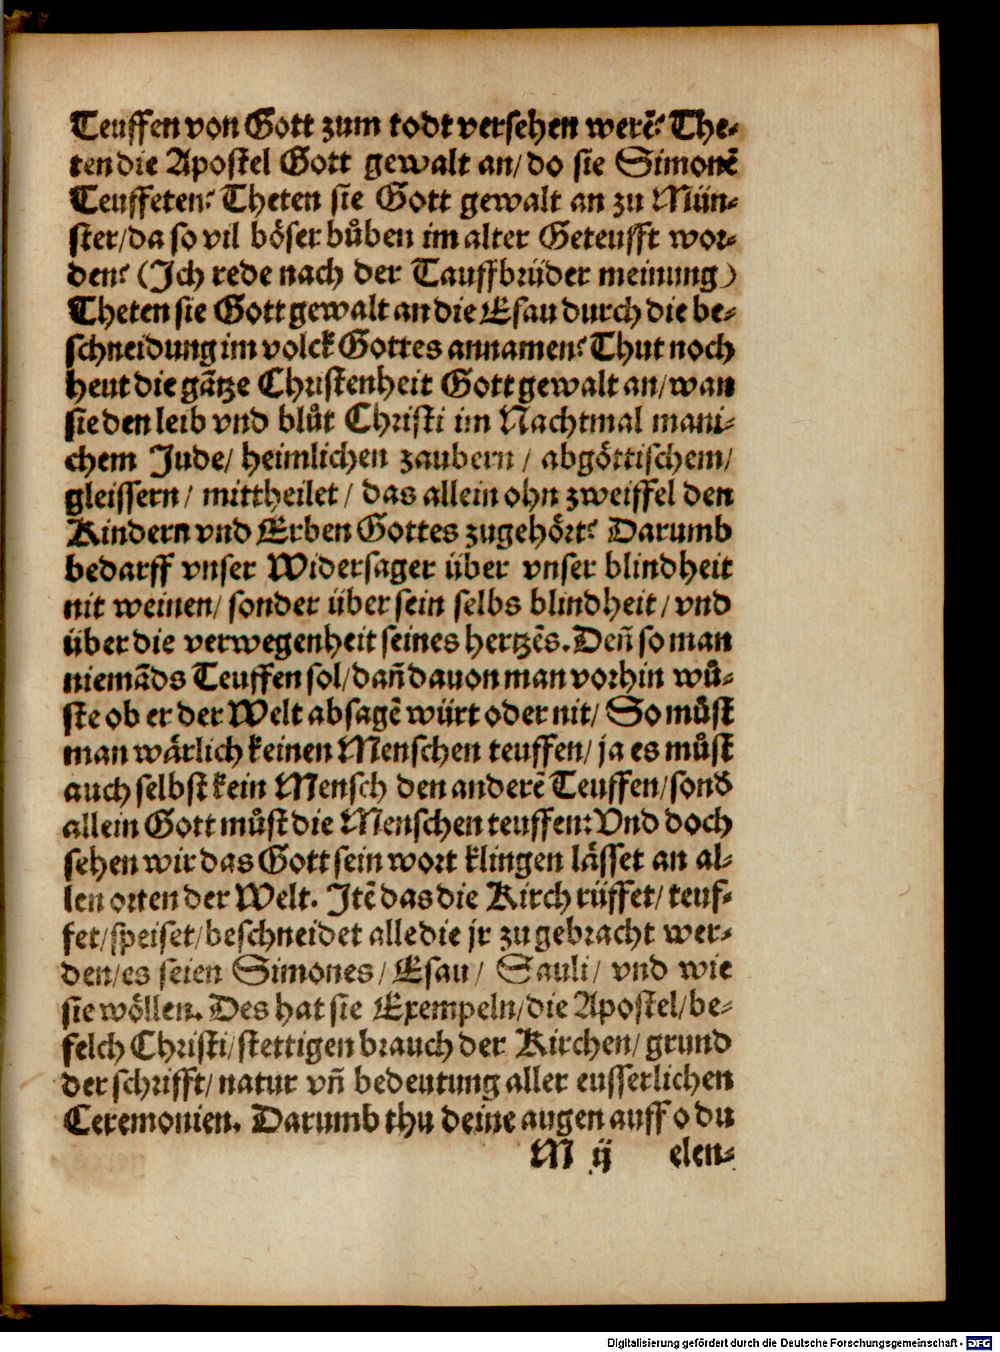 Teuffen von Gott zum todt versehen werẽ? The-
ten die Apostel Gott gewalt an/ do sie Simonẽ
Teuffeten? Theten sie Gott gewalt an zu Mün-
ster/ da so vil böser bůben im alter Geteufft wor-
den? (Ich rede nach der Tauffbrüder meinung)
Theten sie Gott gewalt an die Esau durch die be-
schneidung im volck Gottes annamen? Thut noch
heut die gãtze Christenheit Gott gewalt an/ wan
sie den leib vnd blůt Christi im Nachtmal mani-
chem Jude/ heimlichen zaubern/ abgöttischem/
gleissern/ mittheilet/ das allein ohn zweiffel den
Kindern vnd Erben Gottes zugehört? Darumb
bedarff vnser Widersager über vnser blindheit
nit weinen/ sonder über sein selbs blindheit/ vnd
über die verwegenheit seines hertzẽs. Deñ so man
niemãds Teuffen sol/ dañ dauon man vorhin wů-
ste ob er der Welt absagẽ würt oder nit/ So můst
man wärlich keinen Menschen teuffen/ ja es můst
auch selbst kein Mensch den anderẽ Teuffen/ sond̃
allein Gott můst die Menschen teuffen: Vnd doch
sehen wir das Gott sein wort klingen lässet an al-
len orten der Welt. Itẽ das die Kirch rüffet/ teuf-
fet/ speiset/ beschneidet alle die jr zu gebracht wer-
den/ es seien Simones/ Esau/ Sauli/ vnd wie
sie wöllen. Des hat sie Exempeln/ die Apostel/ be-
felch Christi/ stettigen brauch der Kirchen/ grund
der schrifft/ natur vñ bedeutung aller eusserlichen
Ceremonien. Darumb thu deine augen auff o du
M ij elen-
Digitalisierung gefördert durch die Deutsche Forschungsgemeinschaft - DFG